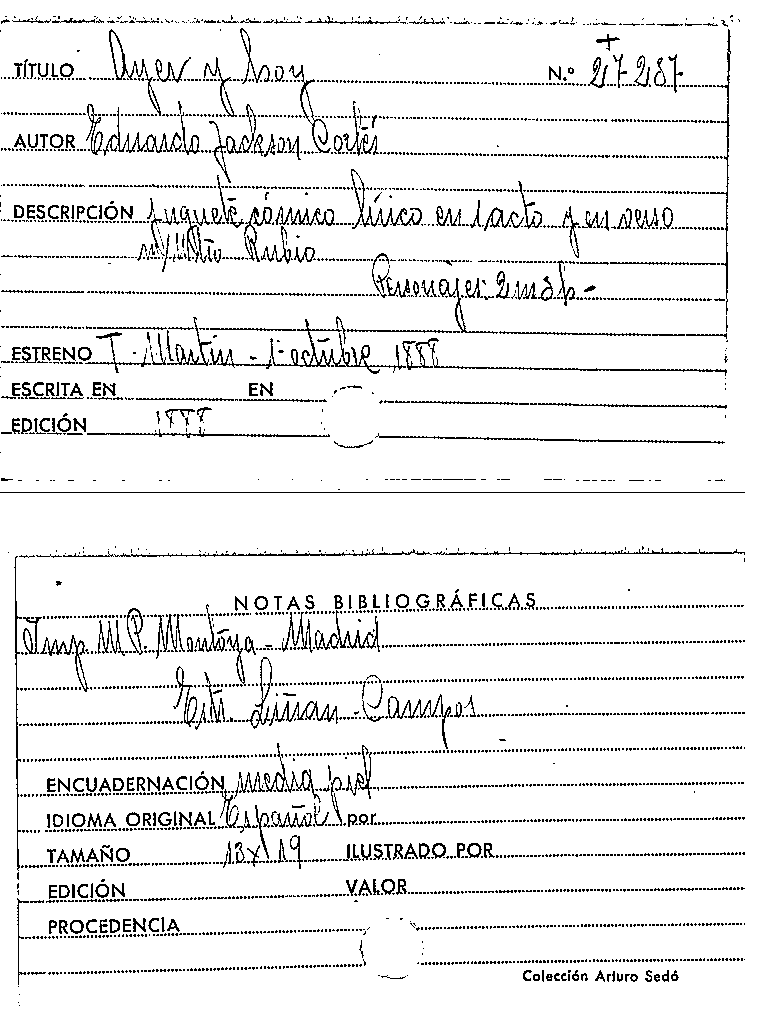 TÍTULO Ayer y hoy N.º 27-287-
AUTOR Eduardo Jackson Cortés
DESCRIPCIÓN Juguete cómico lírico en 1 acto y en verso
Rubio
Personajes: 2m3h-
ESTRENO T. Martín - 1 octubre 1888
ESCRITA EN EN
EDICIÓN 1888
NOTAS BIBLIOGRÁFICAS
Imp M.P. Montoya - Madrid
Estr. Liñan - Campos
ENCUADERNACIÓN media piel
IDIOMA ORIGINAL Español por
TAMAÑO 13x19 ILUSTRADO POR
EDICIÓN VALOR
PROCEDENCIA
Colección Arturo Sedó